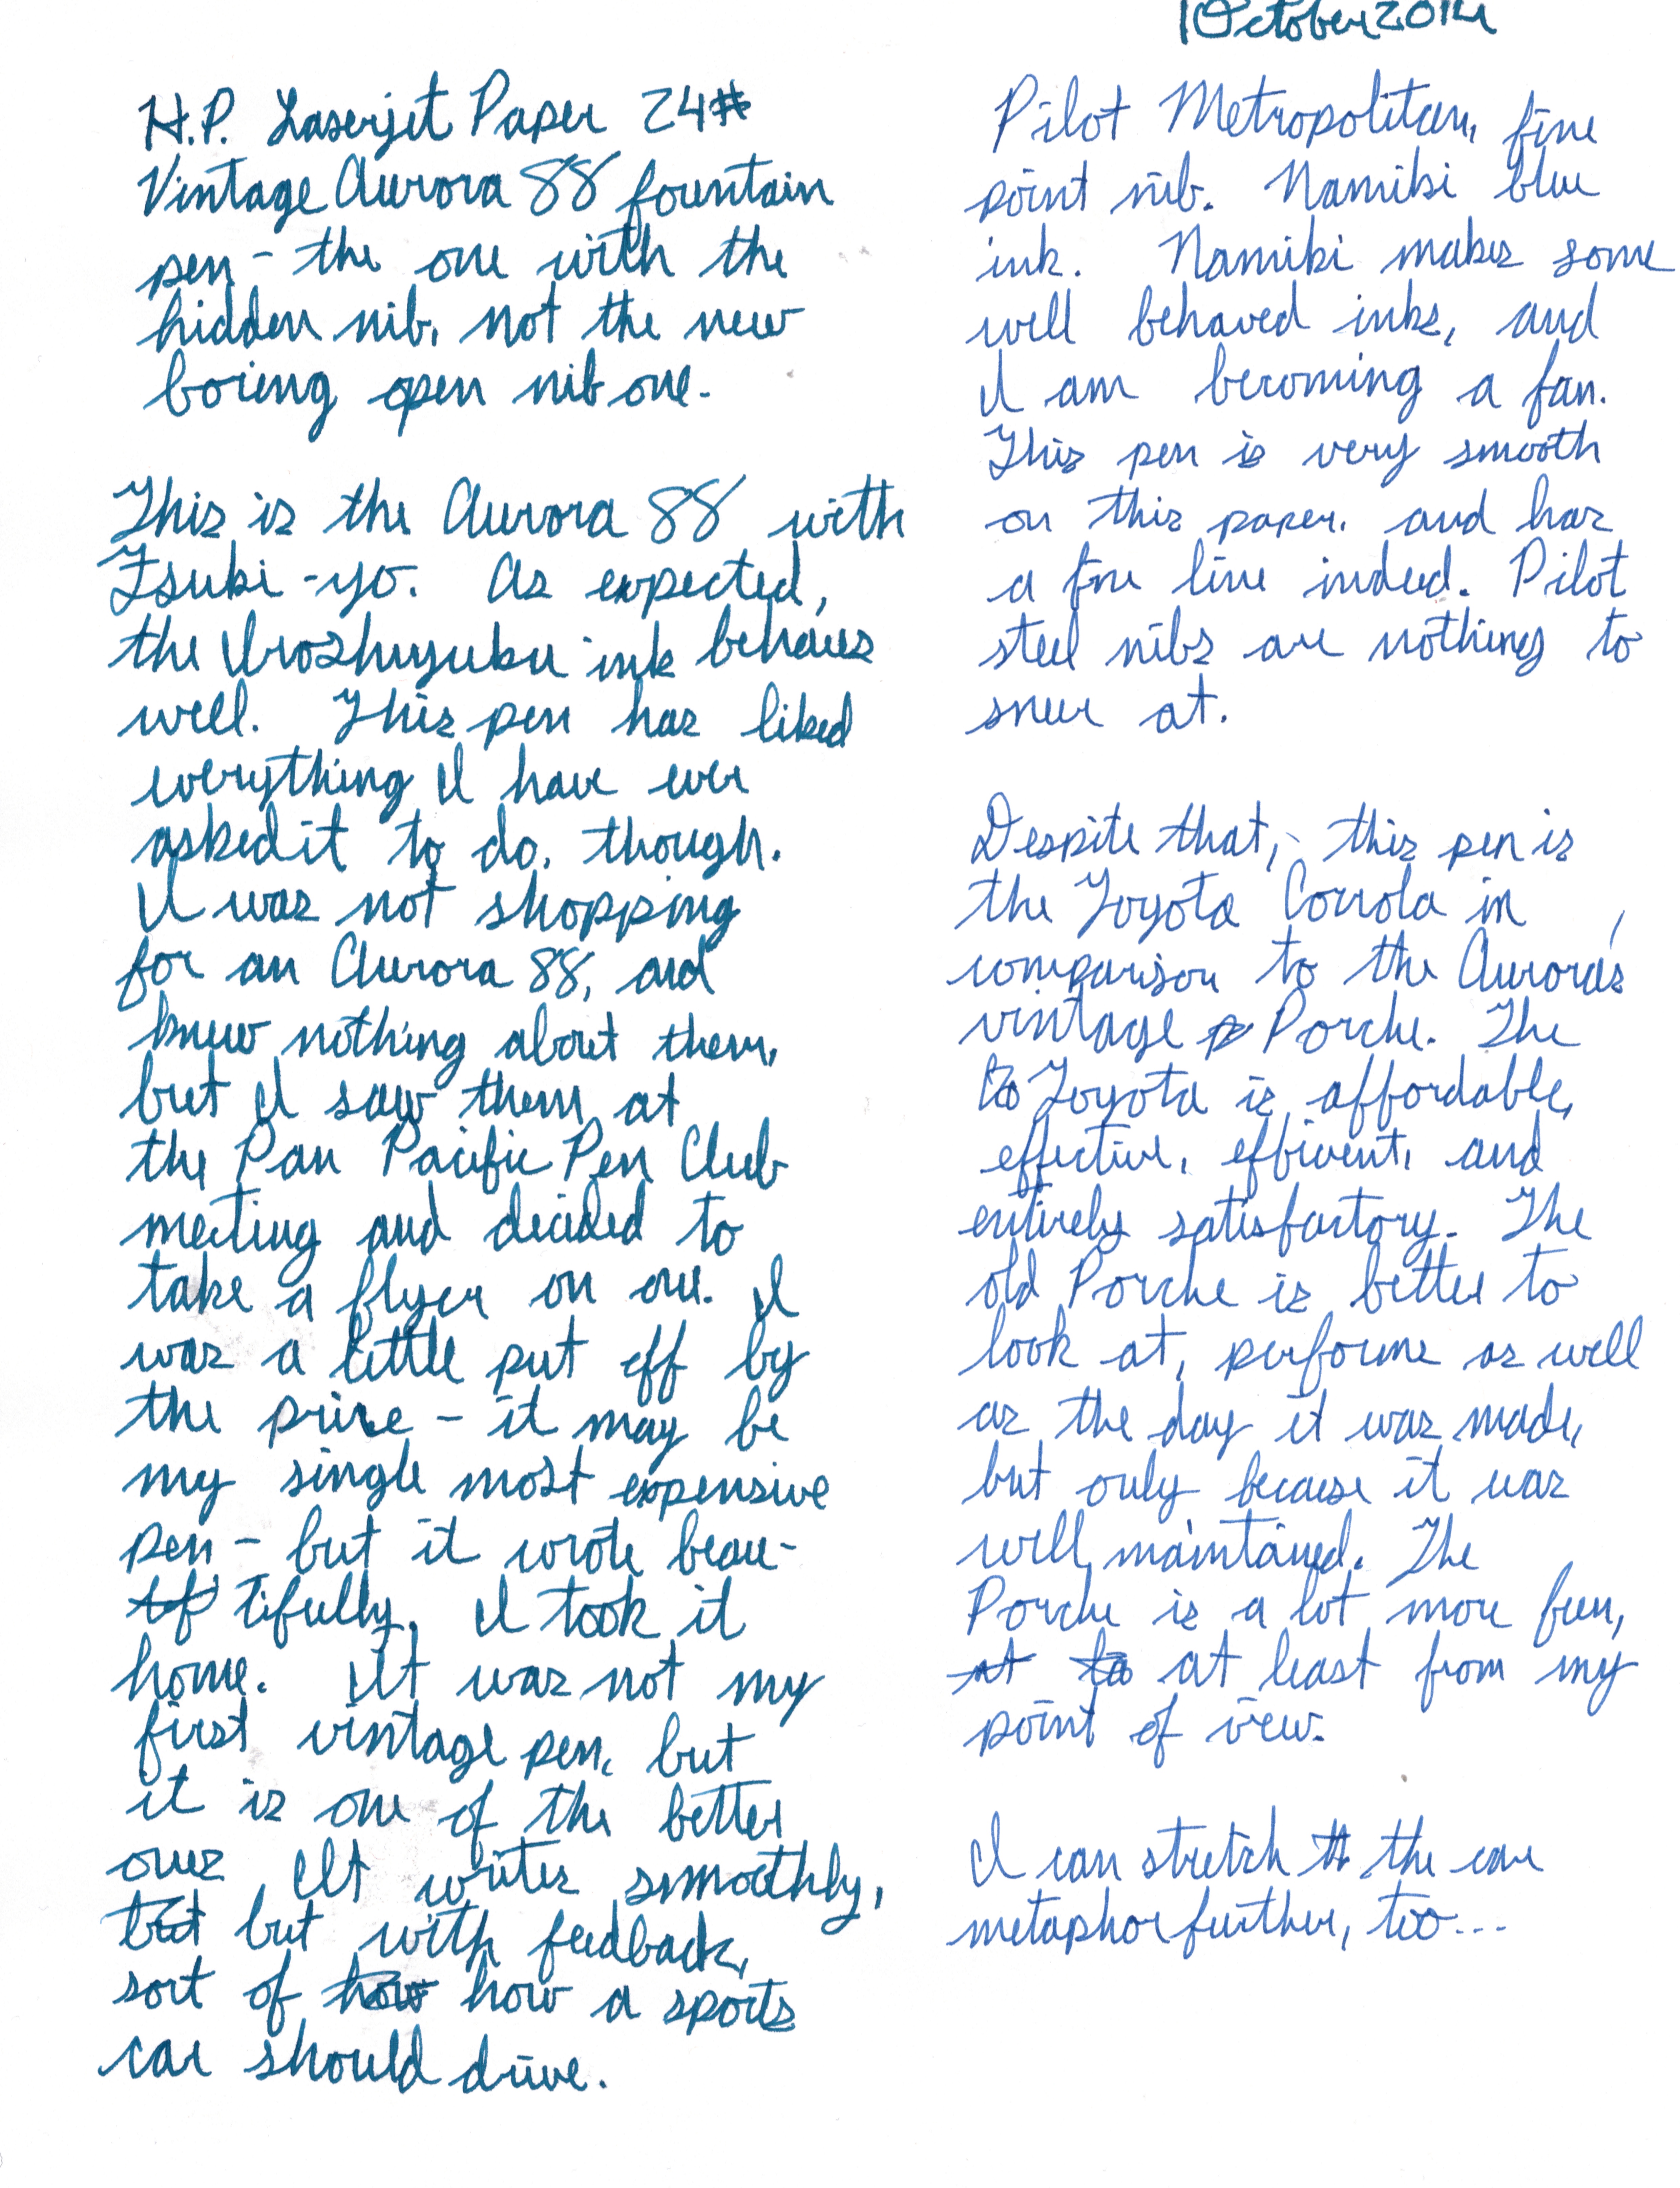 1 October 2014
H.P. Laserjet Paper 24#
Vintage Aurora 88 fountain
pen - the one with the
hidden nib, not the new
boring open nib one.
This is the Aurora 88 with
Tsuki-yo. As expected,
the Iroshuyuku ink behaves
well. This pen has liked
everything I have ever
asked it to do, though.
I was not shopping
for an Aurora 88, and
knew nothing about them,
but I saw them at
the Pan Pacific Pen Club
meeting and decided to
take a flyer on one. I
was a little put off by
the price - it may be
my single most expensive
pen - but it wrote beau-
tifully. I took it
home. It was not my
first vintage pen, but
it is one of the better
ones. It writes smoothly,
but but with feedback,
sort of how how a sports
car should drive.
Pilot Metropolitan, fine
point nib. Namiki blue
ink. Namiki makes some
well behaved inks, and
I am becoming a fan.
This pen is very smooth
on this paper, and has
a fine line indeed. Pilot
steel nibs are nothing to
sneer at.
Despite that, this pen is
the Toyota Corrola in
comparison to the Aurora's
vintage Porche. The
to Toyota is affordable,
effective, efficent, and
entirely satisfactory. The
old Porche is better to
look at, performs as well
as the day it was made,
but only because it was
well maintained. The
Porche is a lot more fun,
at to at least from my
point of view.
I can stretch th the car
metaphor further, too...